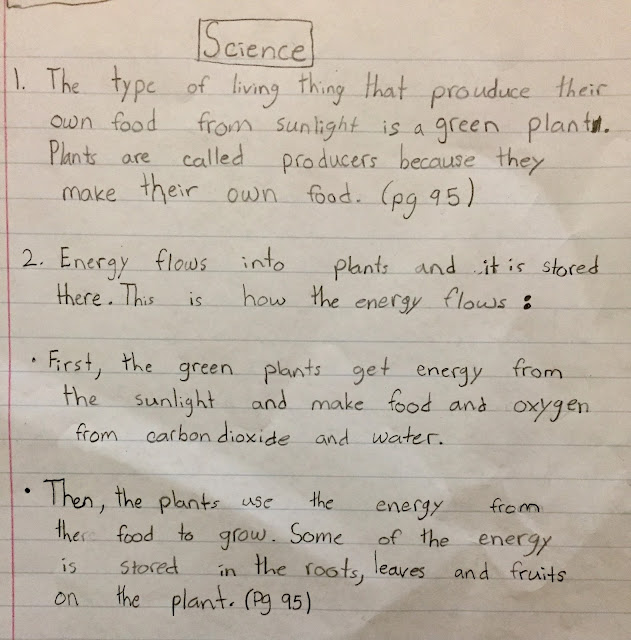 Science
1. The type of living thing that prouduce their
own food from sunlight is a green plant.
Plants are called producers because they
make their own food. (pg 95)
2. Energy flows into plants and it is stored
there. This is how the energy flows :
• First, the green plants get energy from
the sunlight and make food and oxygen
from carbon dioxide and water.
• Then, the plants use the energy from
the food to grow. Some of the energy
is stored in the roots, leaves and fruits
on the plant. (Pg 95)